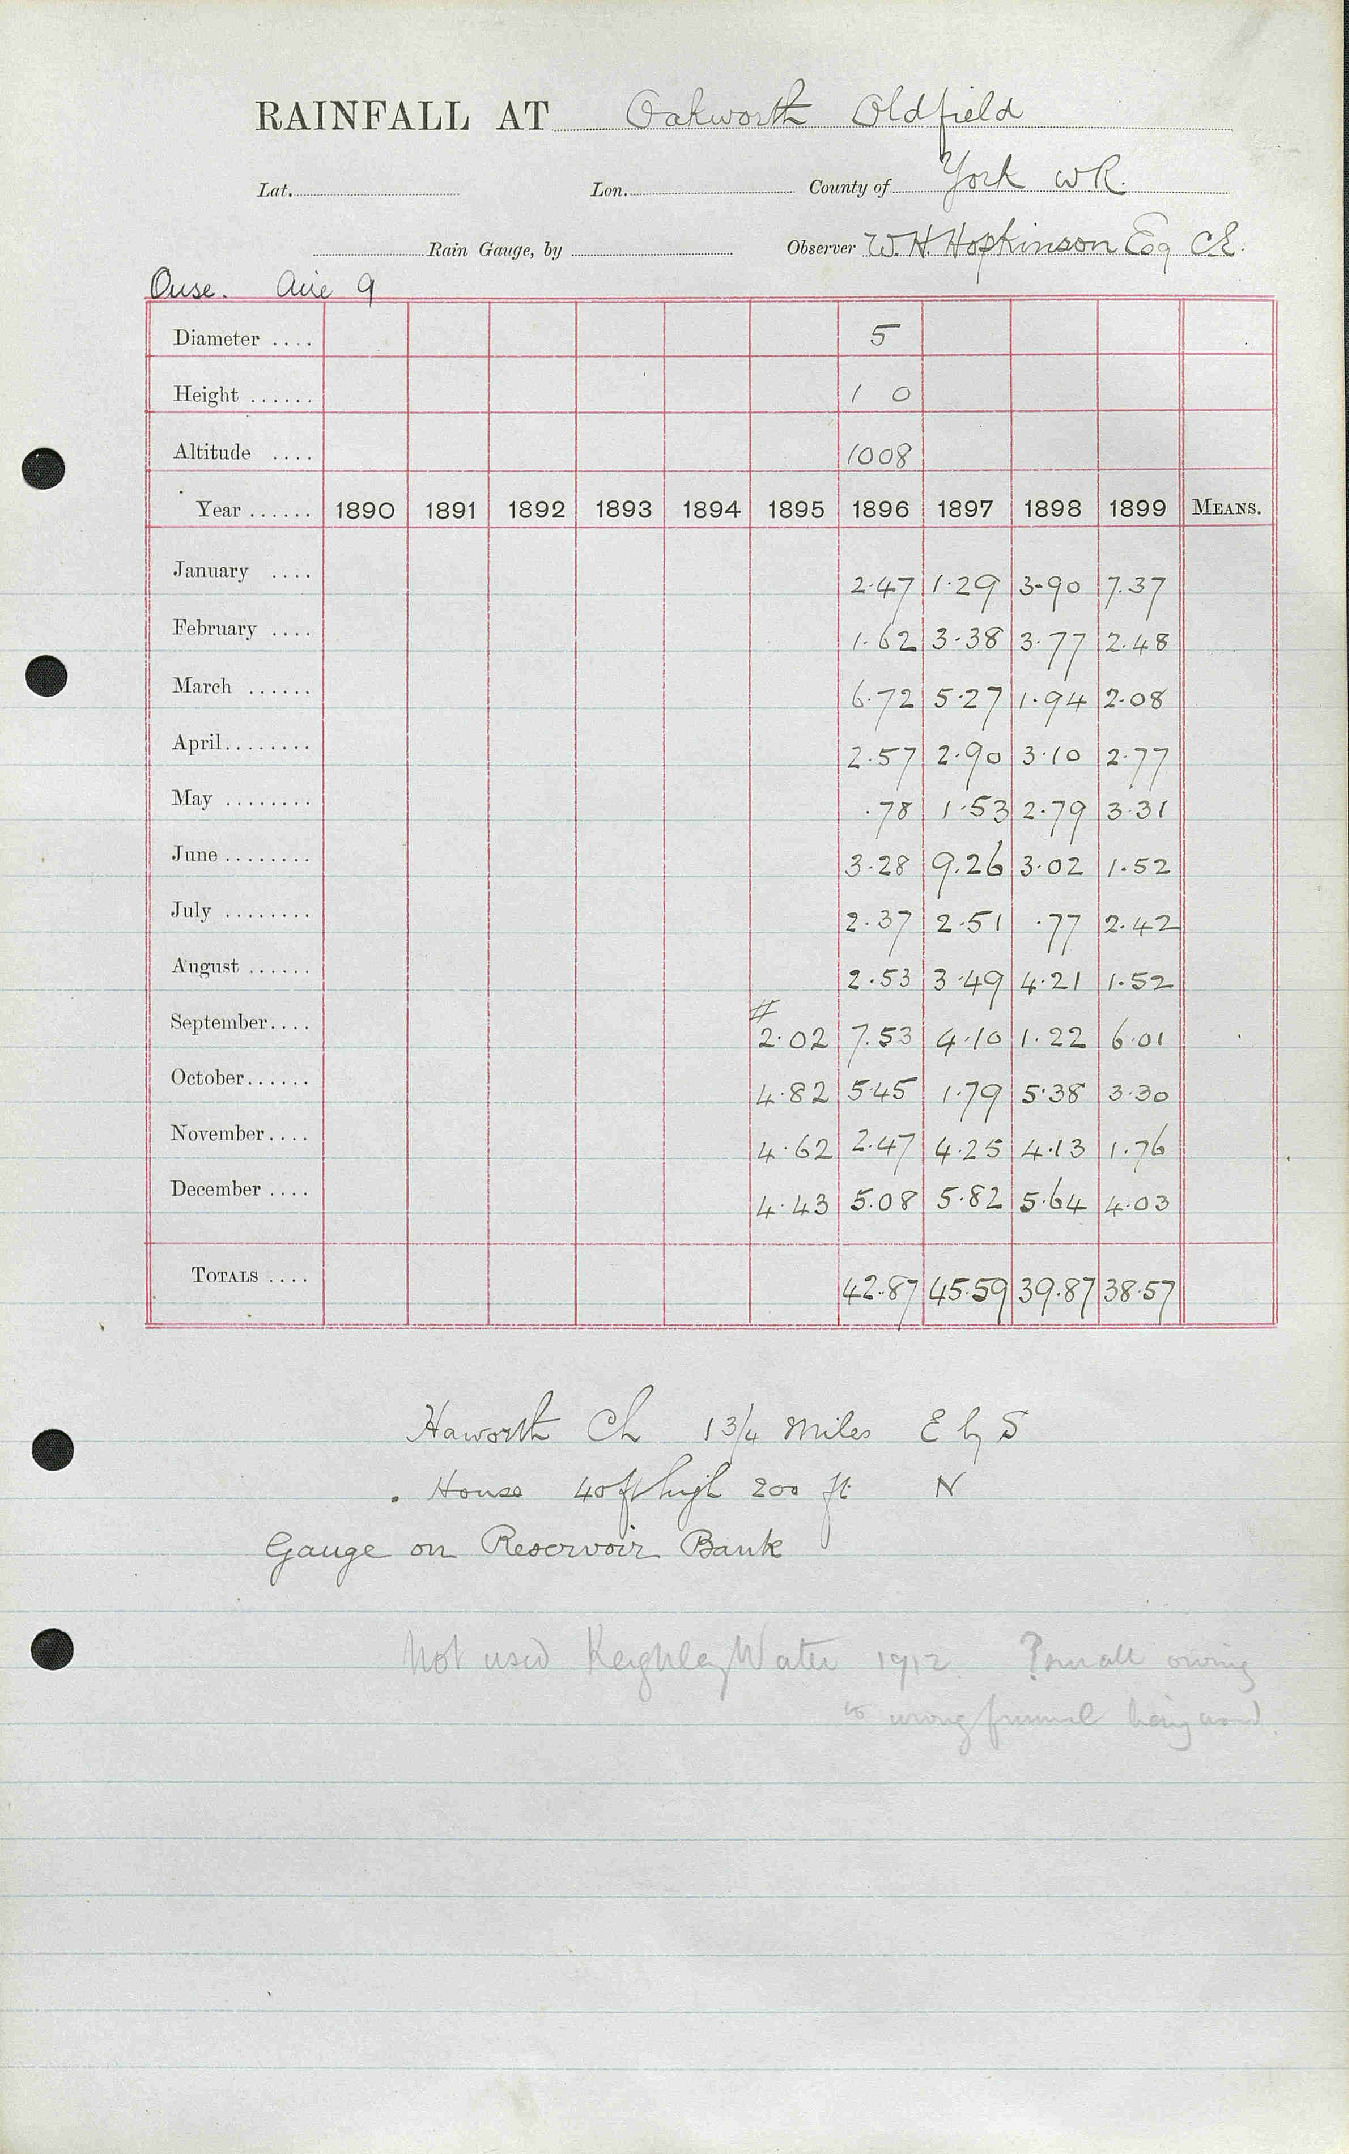 RAINFALL AT Oakworth Oldfield
Lat. Lon. County of York WR.
Rain Gauge, by Observer W.H. Hopkinson Esq C.E.
Ouse. Aire 9
Diameter .... 5
Height ...... 1 0
Altitude .... 1008
Year ...... 1890 1891 1892 1893 1894 1895 1896 1897 1898 1899 MEANS.
January .... 2.47 1.29 3.90 7.37
February .... 1.62 3.38 3.77 2.48
March ...... 6.72 5.27 1.94 2.08
April........ 2.57 2.90 3.10 2.77
May ........ .78 1.53 2.79 3.31
June ........ 3.28 9.26 3.02 1.52
July ........ 2.37 2.51 .77 2.42
August ...... 2.53 3.49 4.21 1.52
#
September.... 2.02 7.53 4.10 1.22 6.01
October...... 4.82 5.45 1.79 5.38 3.30
November.... 4.62 2.47 4.25 4.13 1.76
December .... 4.43 5.08 5.82 5.64 4.03
TOTALS .... 42.87 45.59 39.87 38.57
Haworth Ch 1 3/4 Miles E by S
House 40 ft high 200 ft N
Gauge on Reservoir Bank
Not used Keighley Water 1912. ? small owing
to wrong funnel being used.